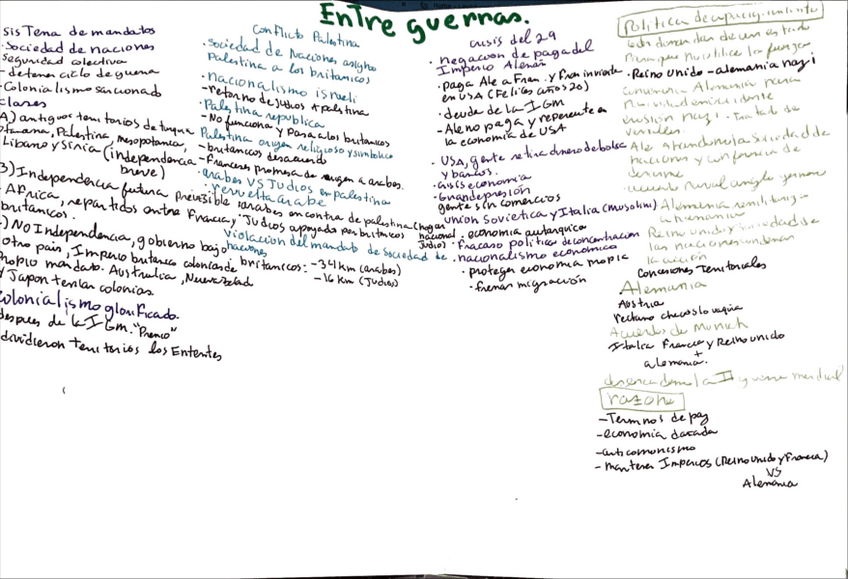 Entre guerras.
sis Tema de mandatos
Sociedad de naciones
seguridad colectiva
- detener ciclo de guerra
Colonialismo sancionado
clases
A) antiguos territorios de turquia
otomano, Palestina, mesopotamia,
Libano y Siria (independencia
breve)
3) Independencia futura previsible
Africa, repartidos entre Francia y
britanicos.
) NO Independencia, gobierno bajo
otro pais, Imperio britanico colonias de
propio mandato. Australia, Nueva
y Japon tenian colonias.
colonialismo glorificado.
despues de la I GM. "Premio"
dividieron Territorios los Ententes
Conflicto Palestina
· Sociedad de Naciones asigno
Palestina a los britanicos
· nacionalismo israeli
- retorno de judios + palestina
· Palestina republica
- No funciona y Pasa a los britanicos
Palestina origen religioso y simbolico
- britanicos desacuerdo
- Franceses promesa de a arabes.
· arabes VS Judios en palestina
· revuelta arabe
arabes en contra de palestina (hogar
nacional
Judios apoyada por britanicos
Judio)
Violacion del mandato de Sociedad de
naciones
britanicos: - 34 km (arabes)
- 16 km (Judios)
crisis del 29
· negacion de paga del
Imperio Aleman
· Paga Ale a Fran. y Fran invierte
en USA (Felices años 20)
· deuda de la I GM
- Ale no paga y repercute en
la economia de USA
· USA, gente retira dinero de bolsa
y bancos.
· crisis economia
· Gran depresion
gente sin comercios
union Sovietica y Italia (Musolini)
· economia autarquica
· fracaso politico de concentracion
· nacionalismo economico
· proteger economia propia
· frenar migración
Politica de apaciguamiento
· Reino Unido - alemania nazi
Tratado de
versalles.
Ale abandona la Sociedad de
naciones y conferencia de
desarme
acuerdo naval anglo germano
Alemania remilitariza
a
Reino unido y sociedad de
las naciones
la acción
Concesiones Territoriales
Alemania
Austria
checoslovaquia
Acuerdos de Munich
Italia Francia y Reino unido
+
alemania.
la II guerra mundial
razone
- Terminos de paz
- economia dañada
- anticomunismo
- mantener Imperios (Reino Unido y Francia)
VS
Alemania